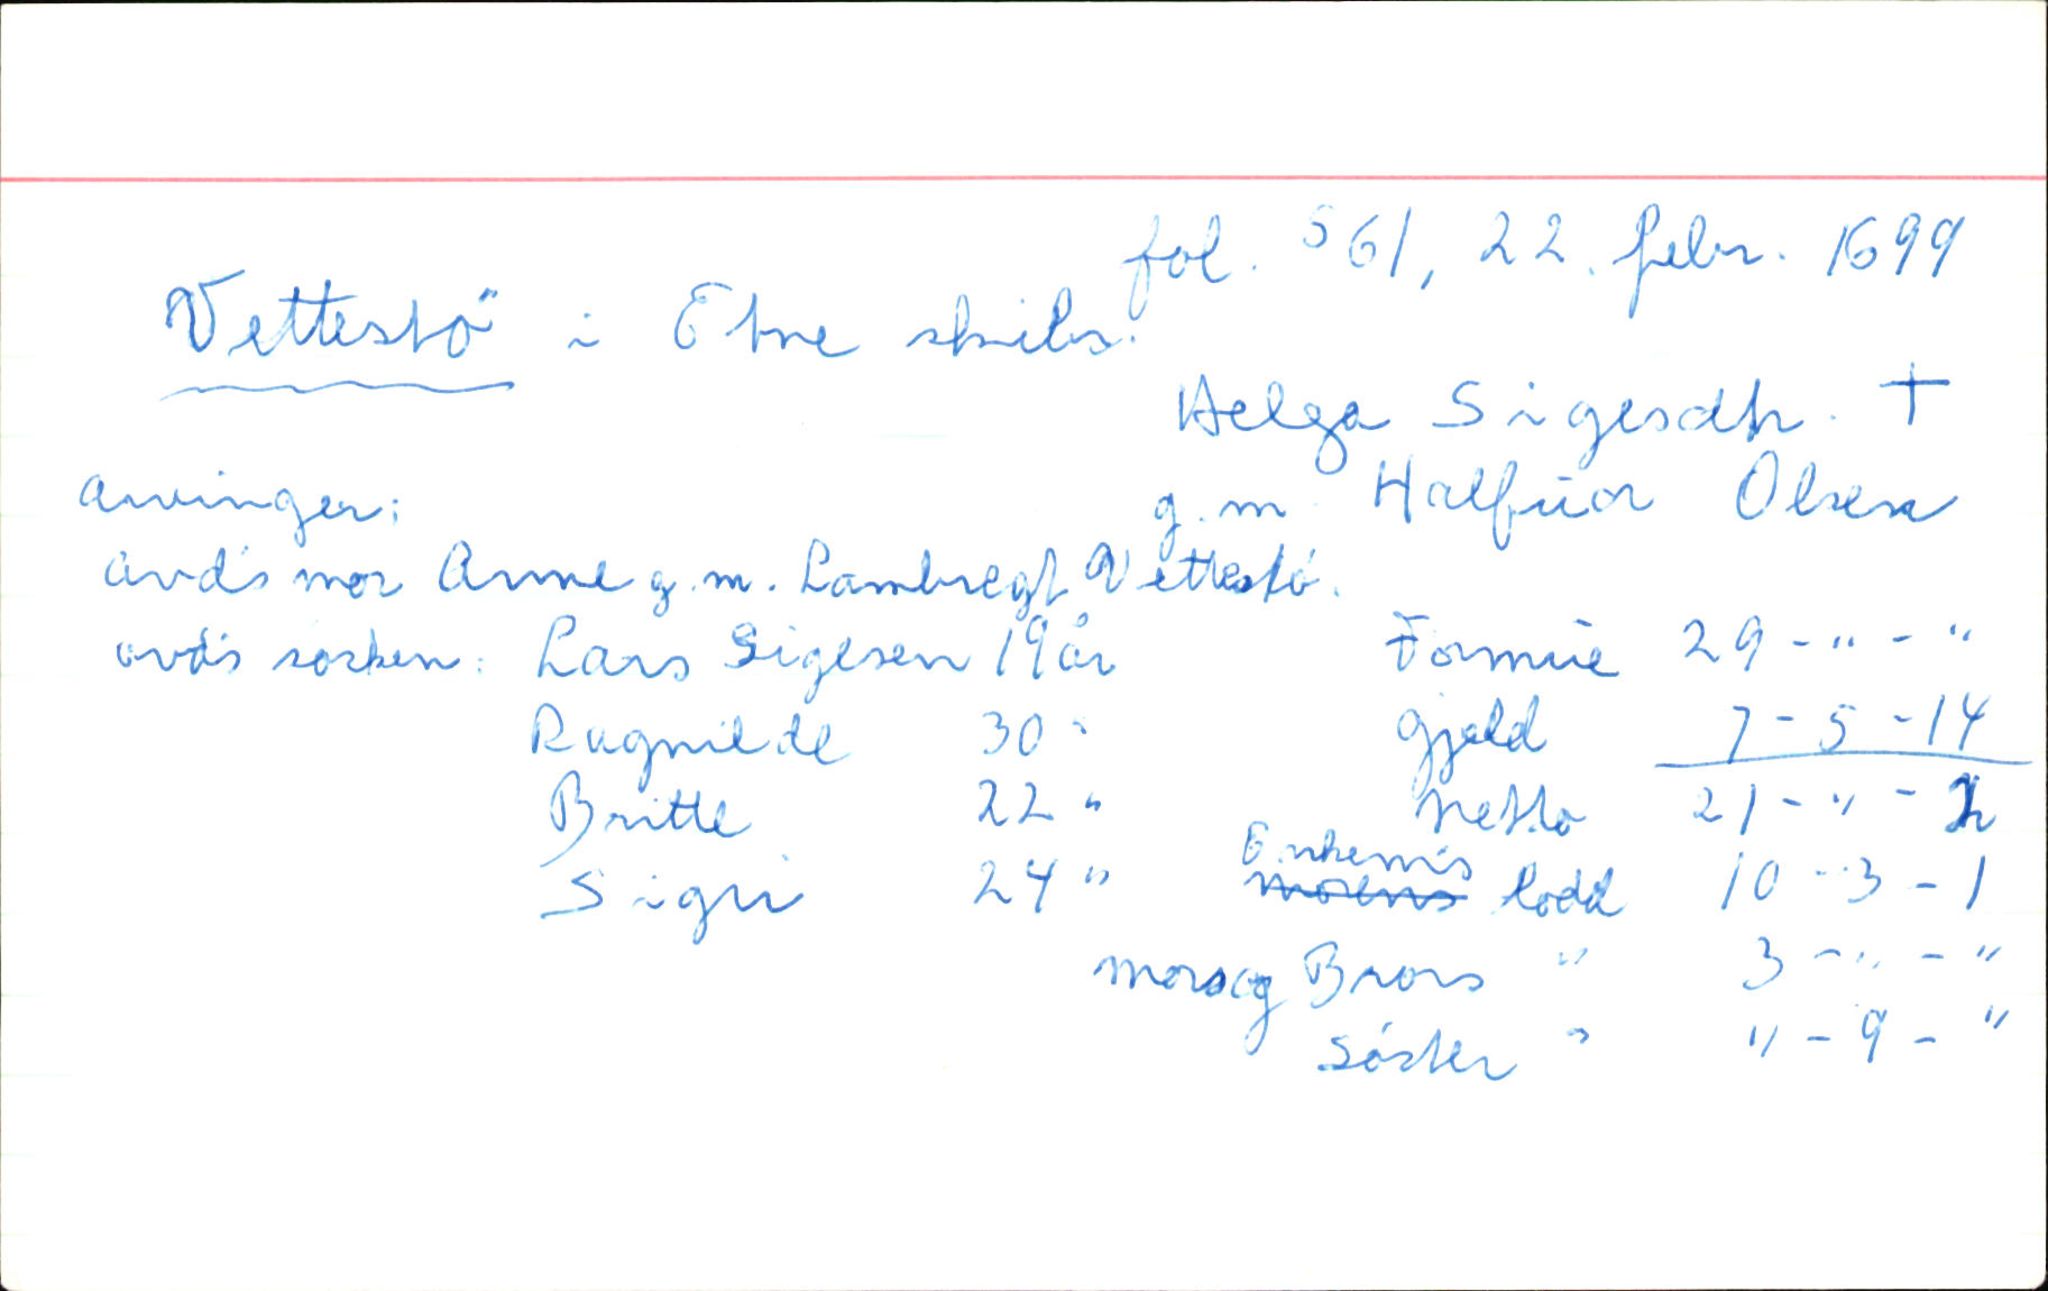 fol. 561, 22. febr. 1699
Vettestö i Etne skibr.
Helga Sigesdtr. †
g.m. Halfuor Olsen
Arvinger:
avd's mor Anne g.m. Lambregt Vettestö.
avd's søsken: Lars Sigesen 19 år
Ragnilde 30 "
Britte 22 "
Sigri 24 "
Formue 29 - " - "
Gjeld 7 - 5 - 14
Netto 21 - " - 2
Enkem's
morens lodd 10 - 3 - 1
mors og Brors " 3 - " - "
Söster " " - 9 - "